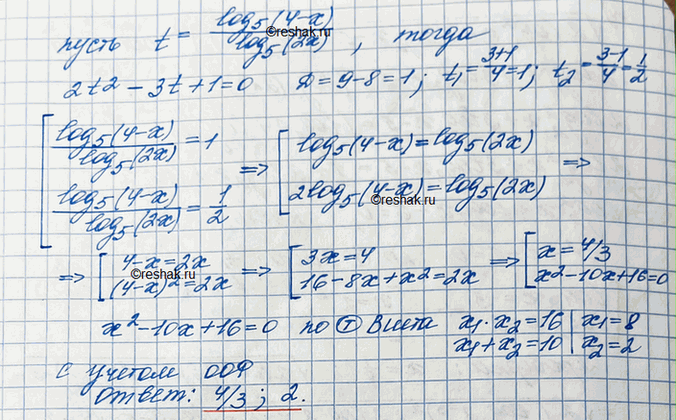 пусть t = log₅(4-x) / log₅(2x), тогда
©reshak.ru
2t2 - 3t + 1 = 0 D = 9 - 8 = 1; t₁ = (3+1)/4 = 1; t₂ = (3-1)/4 = 1/2
[ log₅(4-x) / log₅(2x) = 1 => [ log₅(4-x) = log₅(2x) =>
log₅(4-x) / log₅(2x) = 1/2 2log₅(4-x) = log₅(2x)
©reshak.ru
=> [ 4-x = 2x => [ 3x = 4 => [ x = 4/3
(4-x)² = 2x 16 - 8x + x² = 2x x² - 10x + 16 = 0
©reshak.ru
x² - 10x + 16 = 0 по Ⓣ Виета x₁·x₂ = 16 | x₁ = 8
x₁ + x₂ = 10 | x₂ = 2
с учетом ООФ
ответ: 4/3; 2.